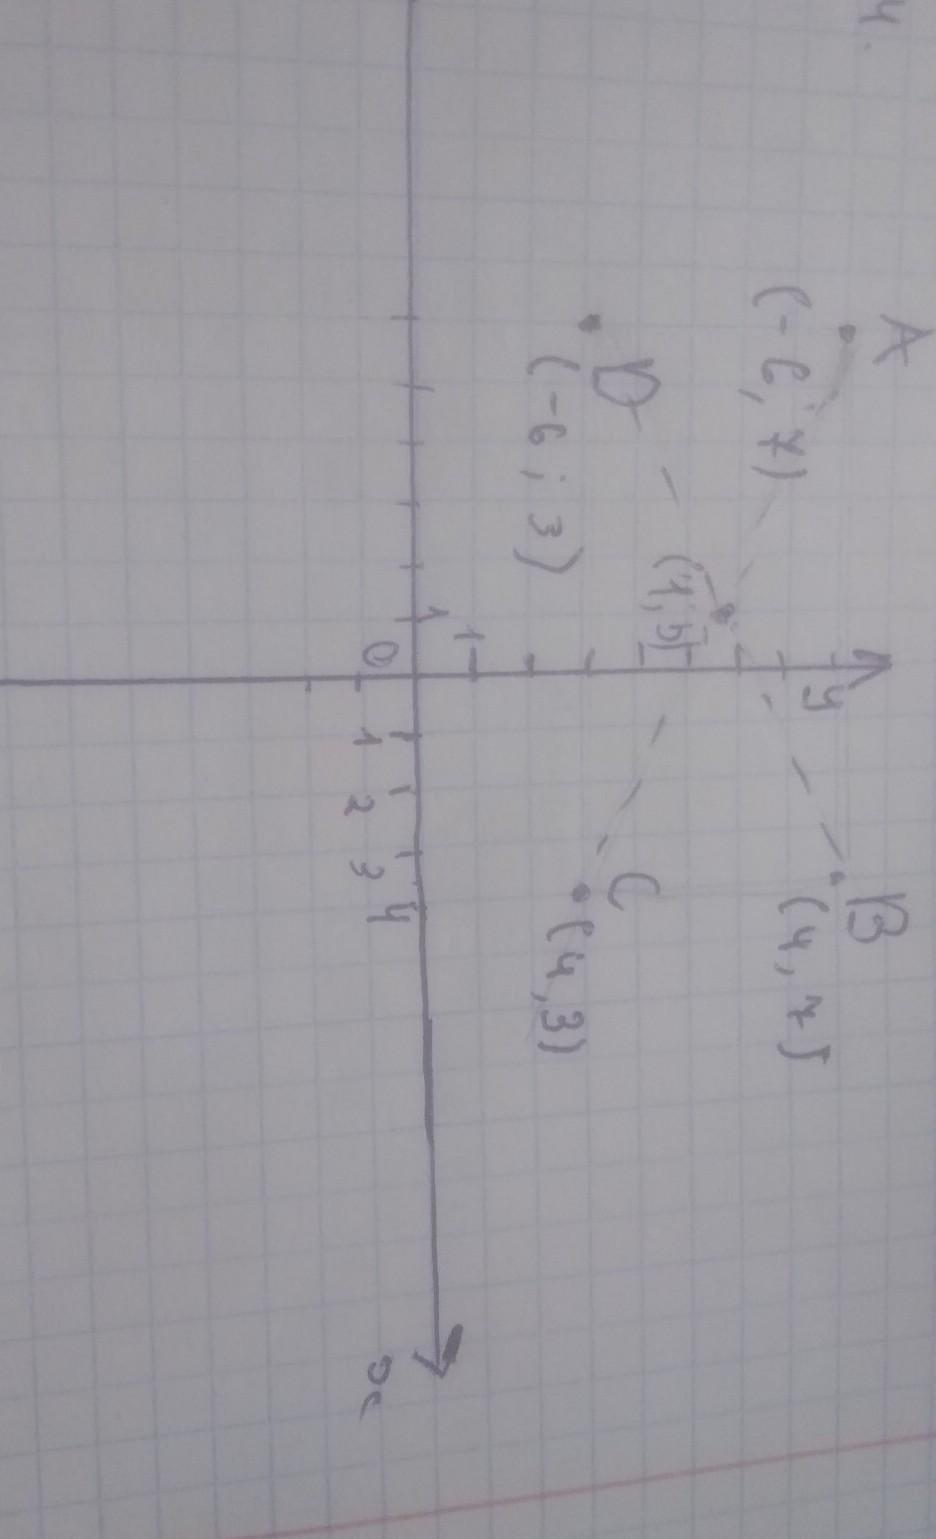 4.
A
(-6; 7)
B
(4, 7)
y
(1, 5)
D
(-6; 3)
C
(4, 3)
1
1
0
1 2 3 4
x